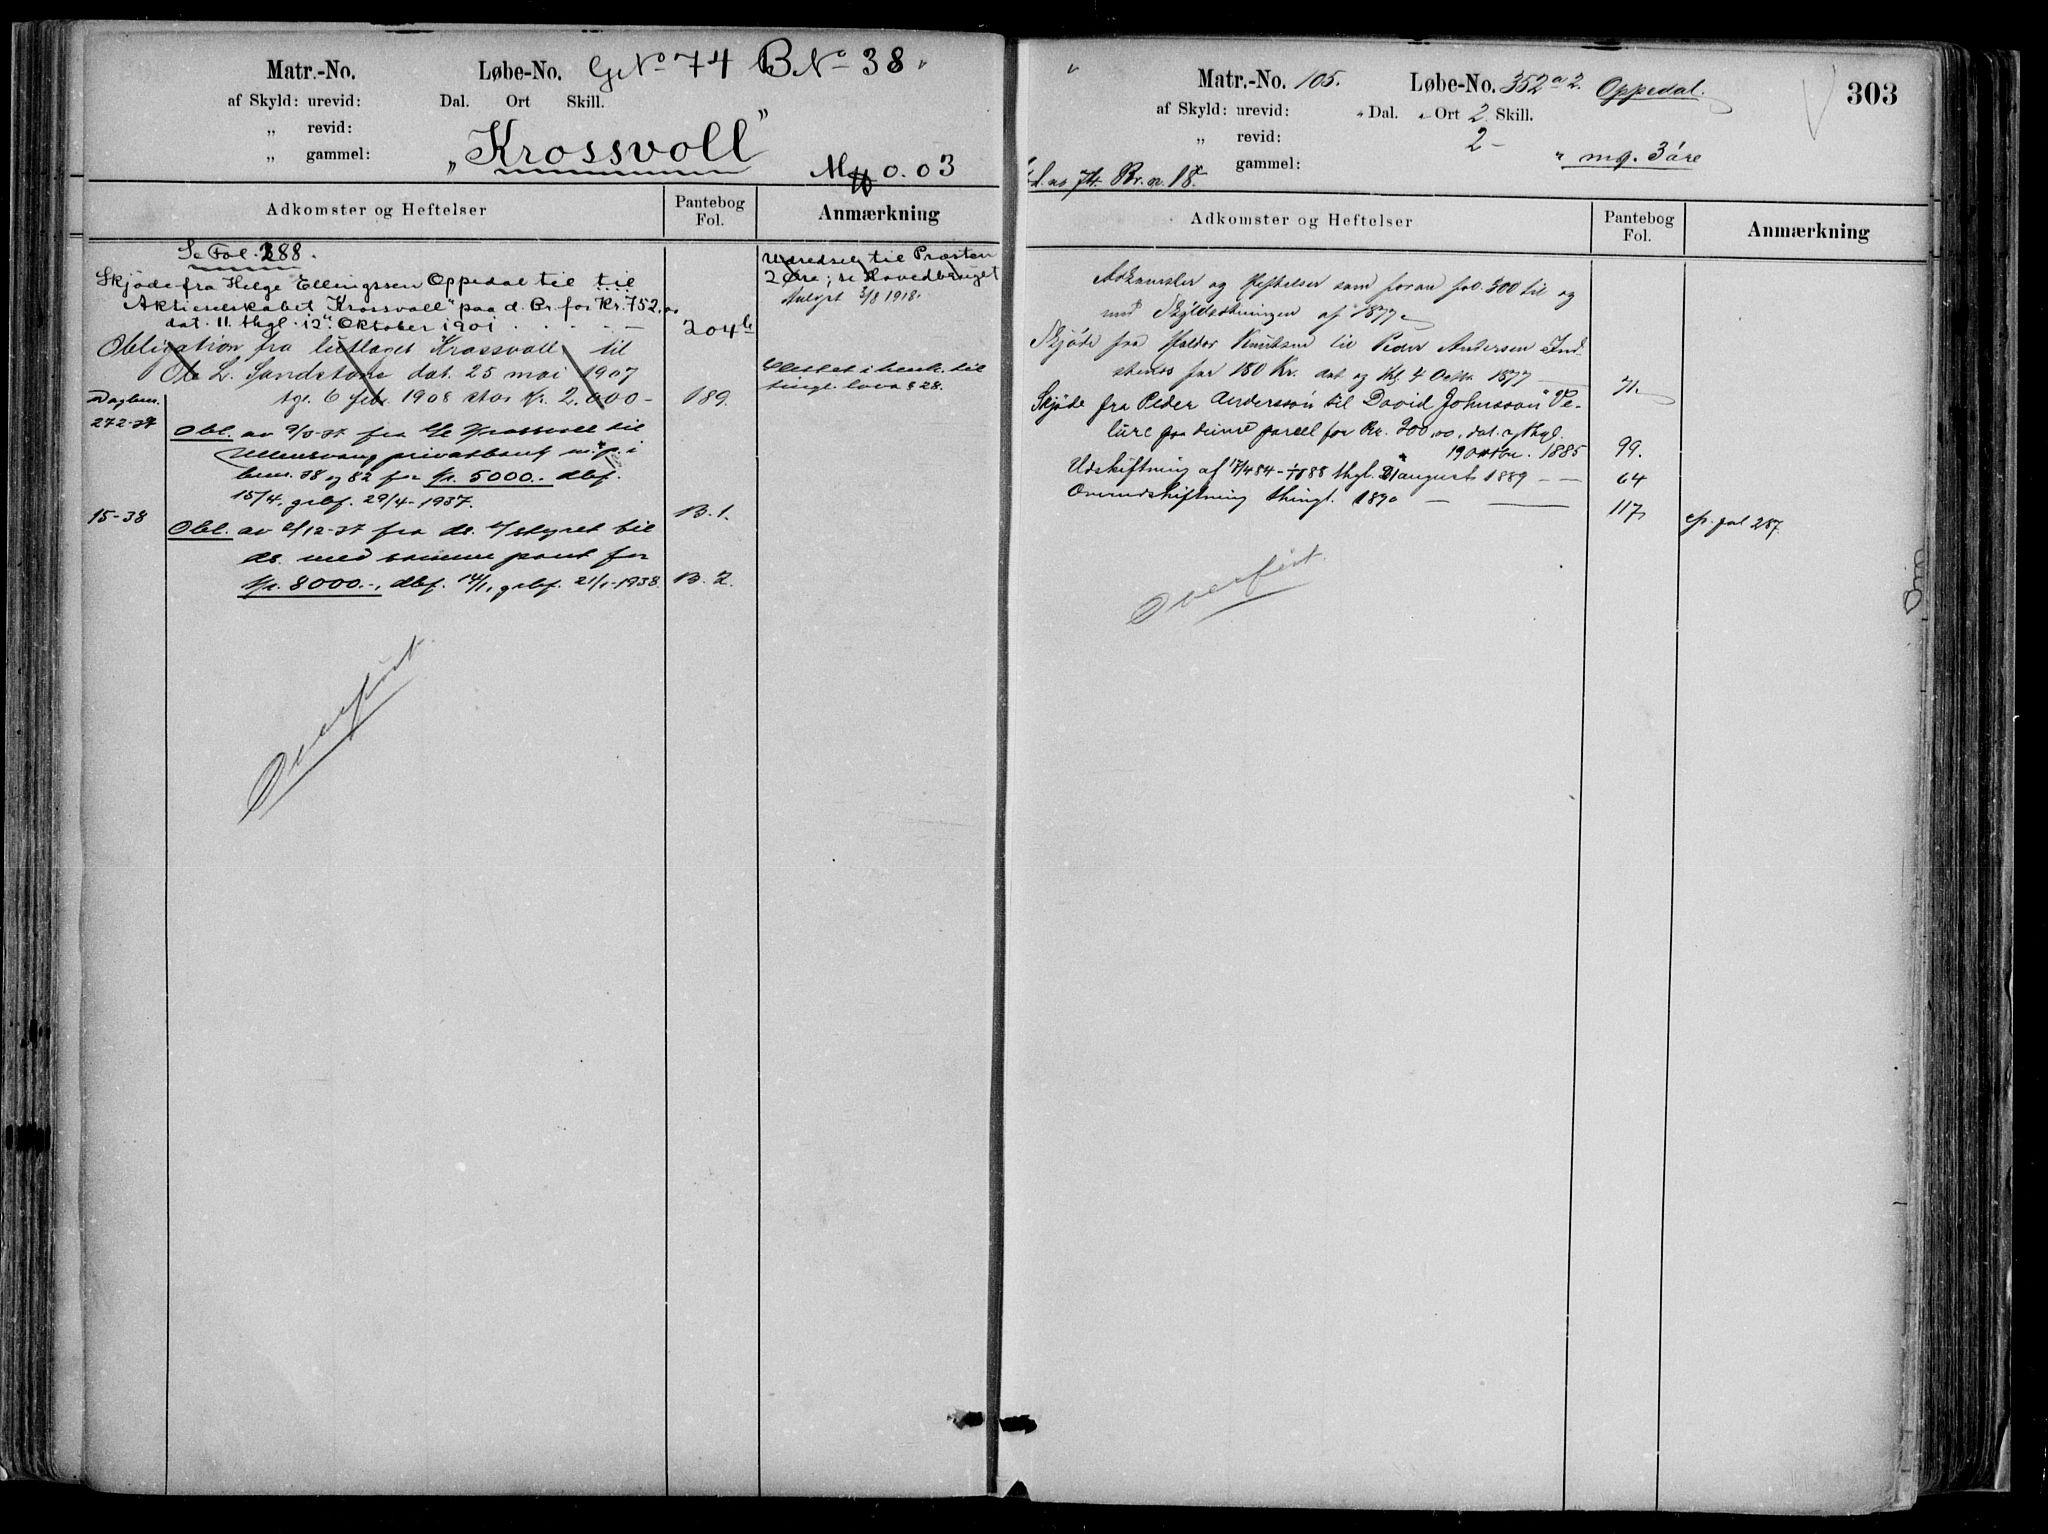 Matr.-No. Løbe-No. GNo 74 BNo 38
af Skyld: urevid: Dal. Ort Skill.
„ revid:
„ gammel:
„Krossvoll"
M 0.03
Adkomster og Heftelser
Pantebog Fol.
Anmærkning
Se Fol. 288.
Skjøde fra Helge Ellingssen Oppedal til til
Aktieselskabet Krossvoll" paa d. Br. for Kr. 752,00
dat. 11 thgl. 12. Oktober 1901 . . . . — 204b
Obligation fra lutlaget Krossvoll til
Ole L. Sandstone dat. 25 mai 1907
tgl. 6 febr 1908 stor Kr. 2.000- 189.
Udredsel til Præsten
2 Øre; se Hovedbruget
Avlyst 3/8 1918.
Slettet i henh. til
tingl. lova § 28.
Dagbnr.
272-37
Obl. av 9/3-37 fra L/l Krossvoll til
Ullensvang privatbank m. p. i
bnr. 38 og 82 for kr. 5000.- dbf.
15/4, grbf. 29/4-1937. B. 1.
15-38
Obl. av 2/12-37 fra ds. v/styret til
ds. med samme pant for
kr. 8000.-, dbf. 14/1, grbf. 21/1-1938. B. 2.
Overført
303
Matr.-No. 105. Løbe-No. 352 a 2. Oppedal.
af Skyld: urevid: „ Dal. „ Ort 2 Skill.
„ revid: 2 -
gammel: „ mq. 3 øre
74. Br. n. 18.
Adkomster og Heftelser
Pantebog Fol.
Anmærkning
Adkomster og Heftelser som foran fol. 300 til og
med Skyldsætningen af 1877
Skjøde fra Haldor Knutsen til Peder Andersen Ind-
stenes for 180 Kr. dat og thgl 4 Octbr. 1877 — 71.
Skjøde fra Peder Anderssøn til David Johnssøn Ve-
lure paa denne parcel for Kr. 200,00, dat. og thgl.
19 Oktbr. 1885 99.
Udskiftning af 17/4 84 - 1/11 88 thgl. 21 august 1889 — — 64
Overudskiftning thingl. 1890 — — 117
cfr. fol 287.
Overført.